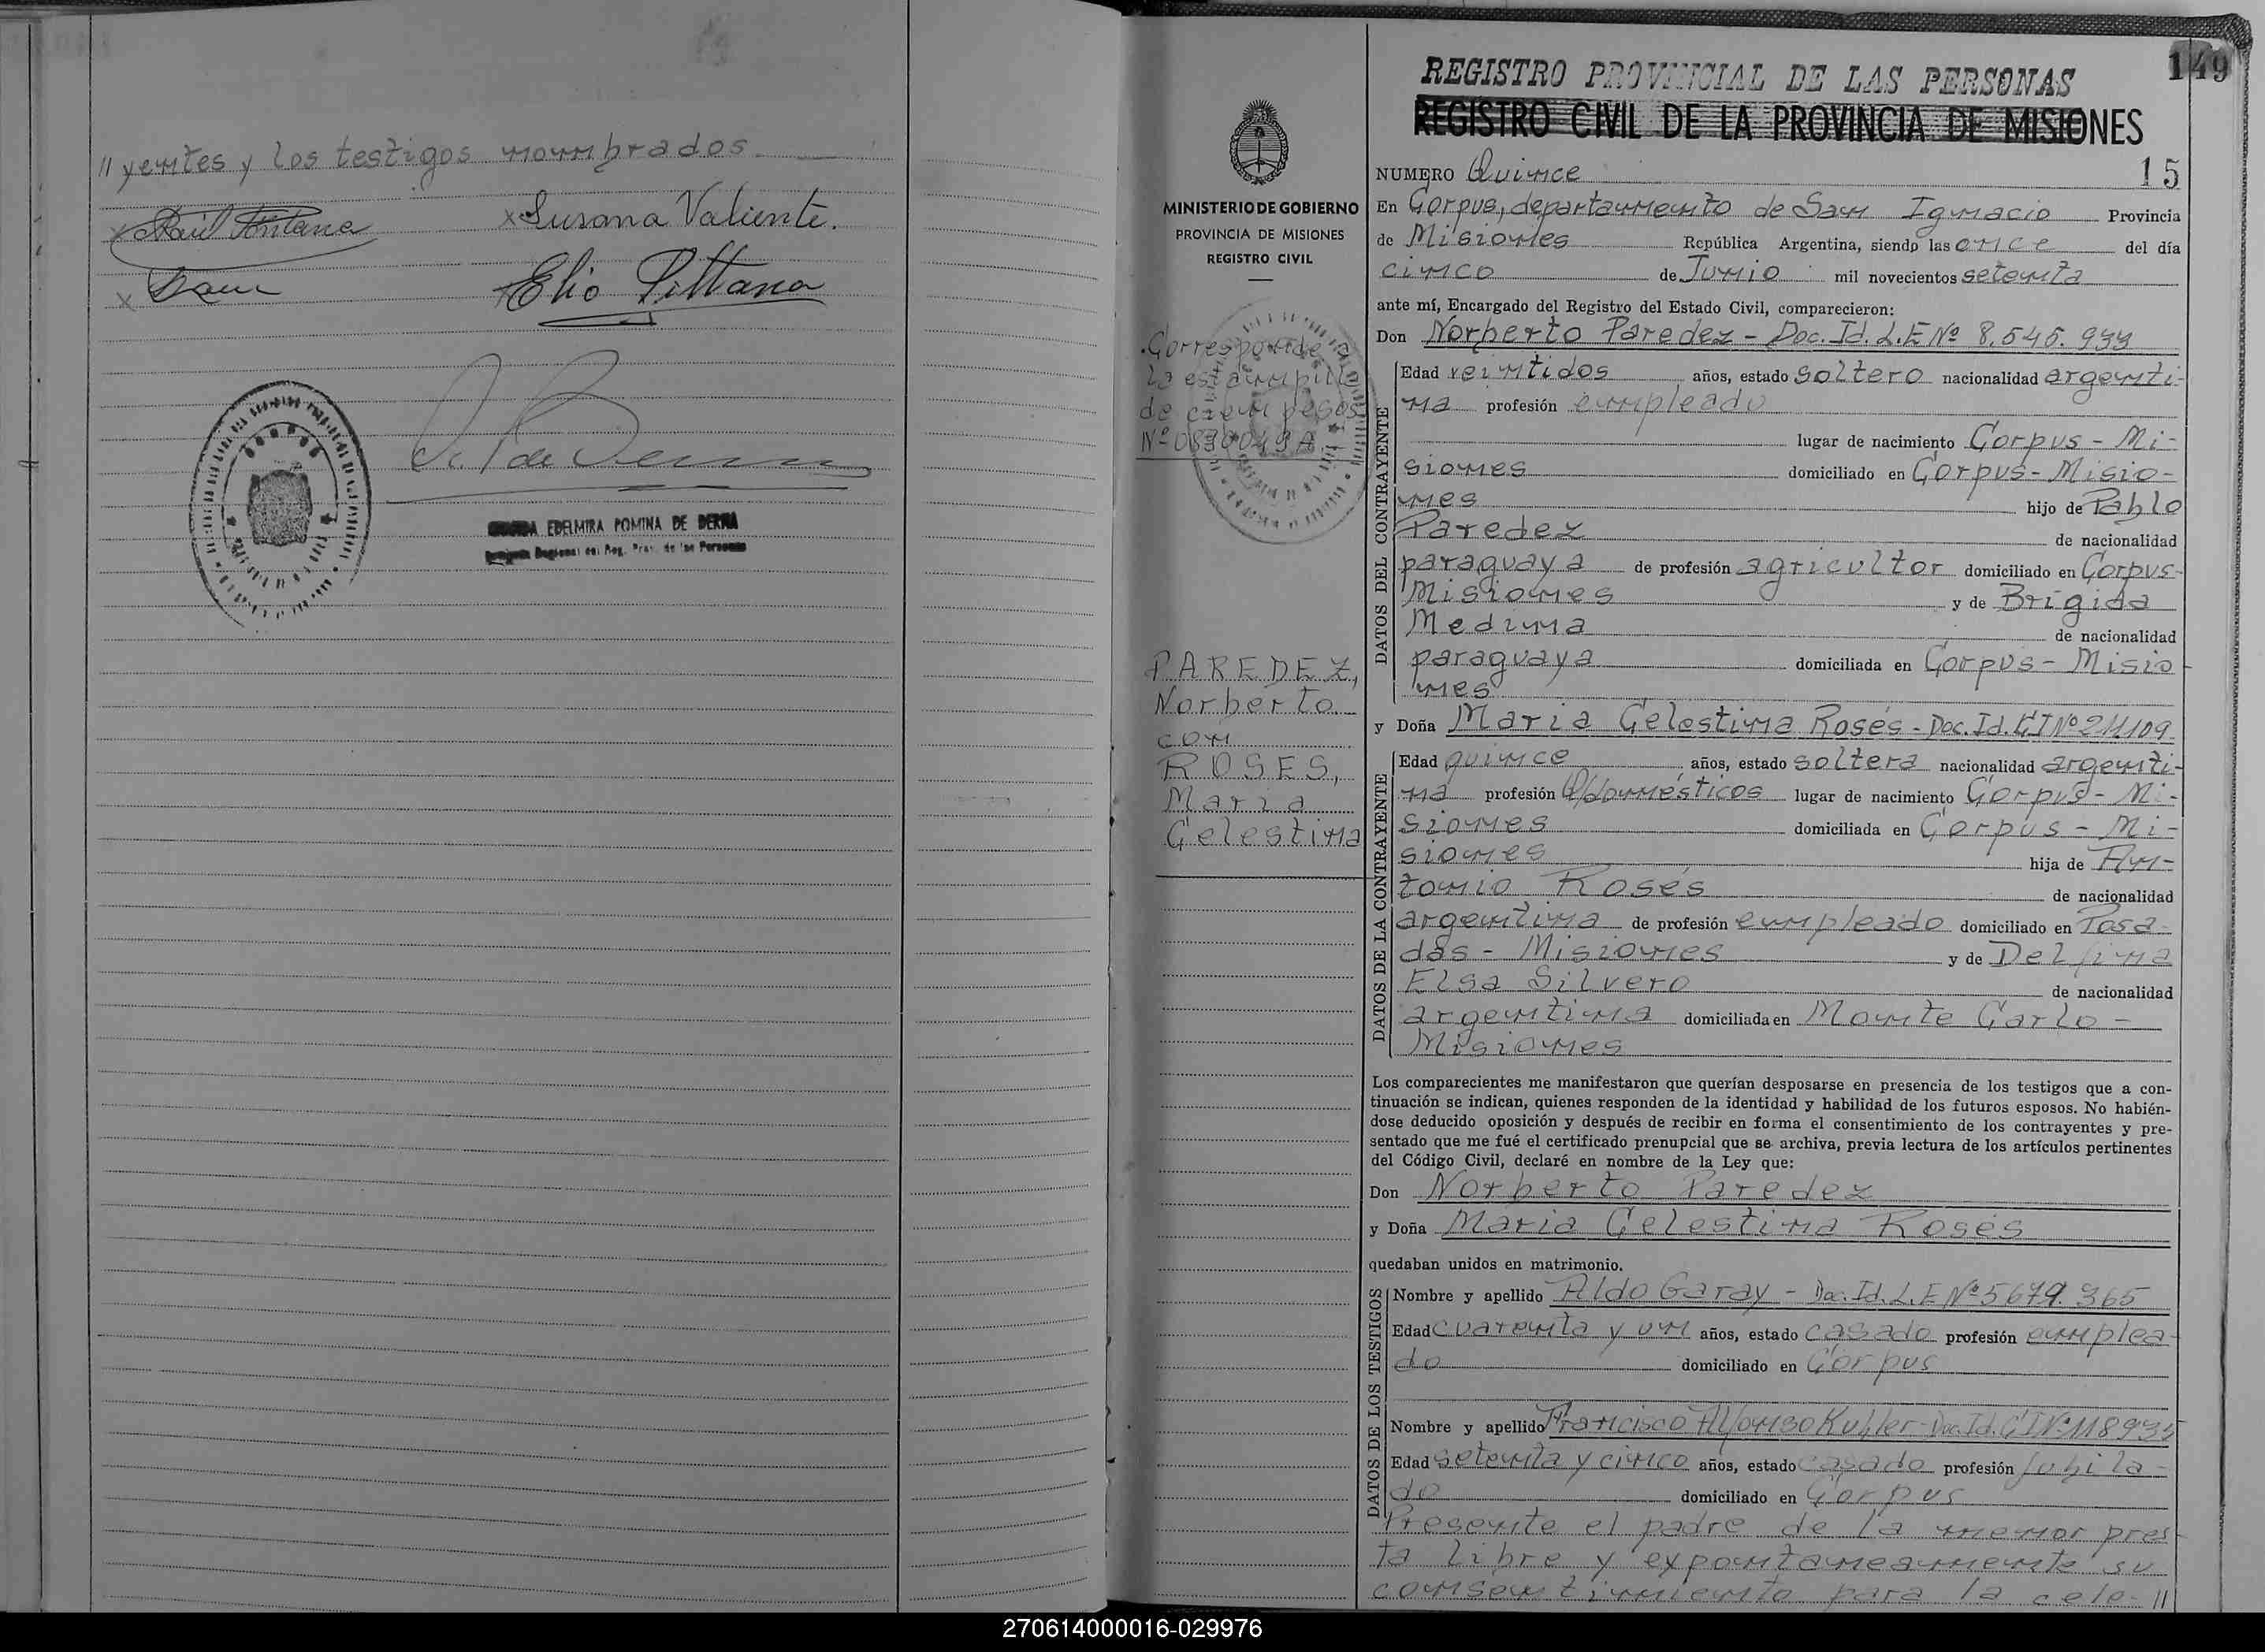 // yentes y los testigos nombrados.
x Raúl Fontana
x Susana Valiente.
x
x Elio Pittana
EDELMIRA POMINA DE BERNA
149
REGISTRO PROVINCIAL DE LAS PERSONAS
REGISTRO CIVIL DE LA PROVINCIA DE MISIONES
15
MINISTERIO DE GOBIERNO
PROVINCIA DE MISIONES
REGISTRO CIVIL
Corresponde
la estampilla
de cien pesos
Nº 0830049 A
PAREDEZ,
Norberto
con
ROSES,
Maria
Celestina
NUMERO Quince
En Corpus, departamento de San Ignacio Provincia
de Misiones República Argentina, siendo las once del día
cinco de Junio mil novecientos setenta
ante mí, Encargado del Registro del Estado Civil, comparecieron:
Don Norberto Paredez - Doc. Id. L.E Nº 8.545.939
DATOS DEL CONTRAYENTE
Edad veintidos años, estado soltero nacionalidad argenti-
na profesión empleado
lugar de nacimiento Corpus - Mi-
siones domiciliado en Corpus - Misio-
nes hijo de Pablo
Paredez de nacionalidad
paraguaya de profesión agricultor domiciliado en Corpus-
Misiones y de Brígida
Medina de nacionalidad
paraguaya domiciliada en Corpus - Misio-
nes
y Doña Maria Celestina Rosés - Doc. Id. C.I Nº 211109
DATOS DE LA CONTRAYENTE
Edad quince años, estado soltera nacionalidad argenti-
na profesión Q/domésticos lugar de nacimiento Corpus - Mi-
siones domiciliada en Corpus - Mi-
siones hija de An-
tonio Rosés de nacionalidad
argentina de profesión empleado domiciliado en Posa-
das - Misiones y de Delfina
Elsa Silvero de nacionalidad
argentina domiciliada en Monte Carlo -
Misiones
Los comparecientes me manifestaron que querían desposarse en presencia de los testigos que a con-
tinuación se indican, quienes responden de la identidad y habilidad de los futuros esposos. No habién-
dose deducido oposición y después de recibir en forma el consentimiento de los contrayentes y pre-
sentado que me fué el certificado prenupcial que se archiva, previa lectura de los artículos pertinentes
del Código Civil, declaré en nombre de la Ley que:
Don Norberto Paredez
y Doña Maria Celestina Rosés
quedaban unidos en matrimonio.
DATOS DE LOS TESTIGOS
Nombre y apellido Aldo Garay - Doc. Id. L.E Nº 5679.365
Edad cuarenta y un años, estado casado profesión emplea-
do domiciliado en Corpus
Nombre y apellido Francisco Alfonso Kuhler - Doc. Id. C.I Nº 118935
Edad setenta y cinco años, estado casado profesión jubila-
do domiciliado en Corpus
Presente el padre de la menor pres-
ta libre y expontaneamente su
consentimiento para la cele- //
270614000016-029976